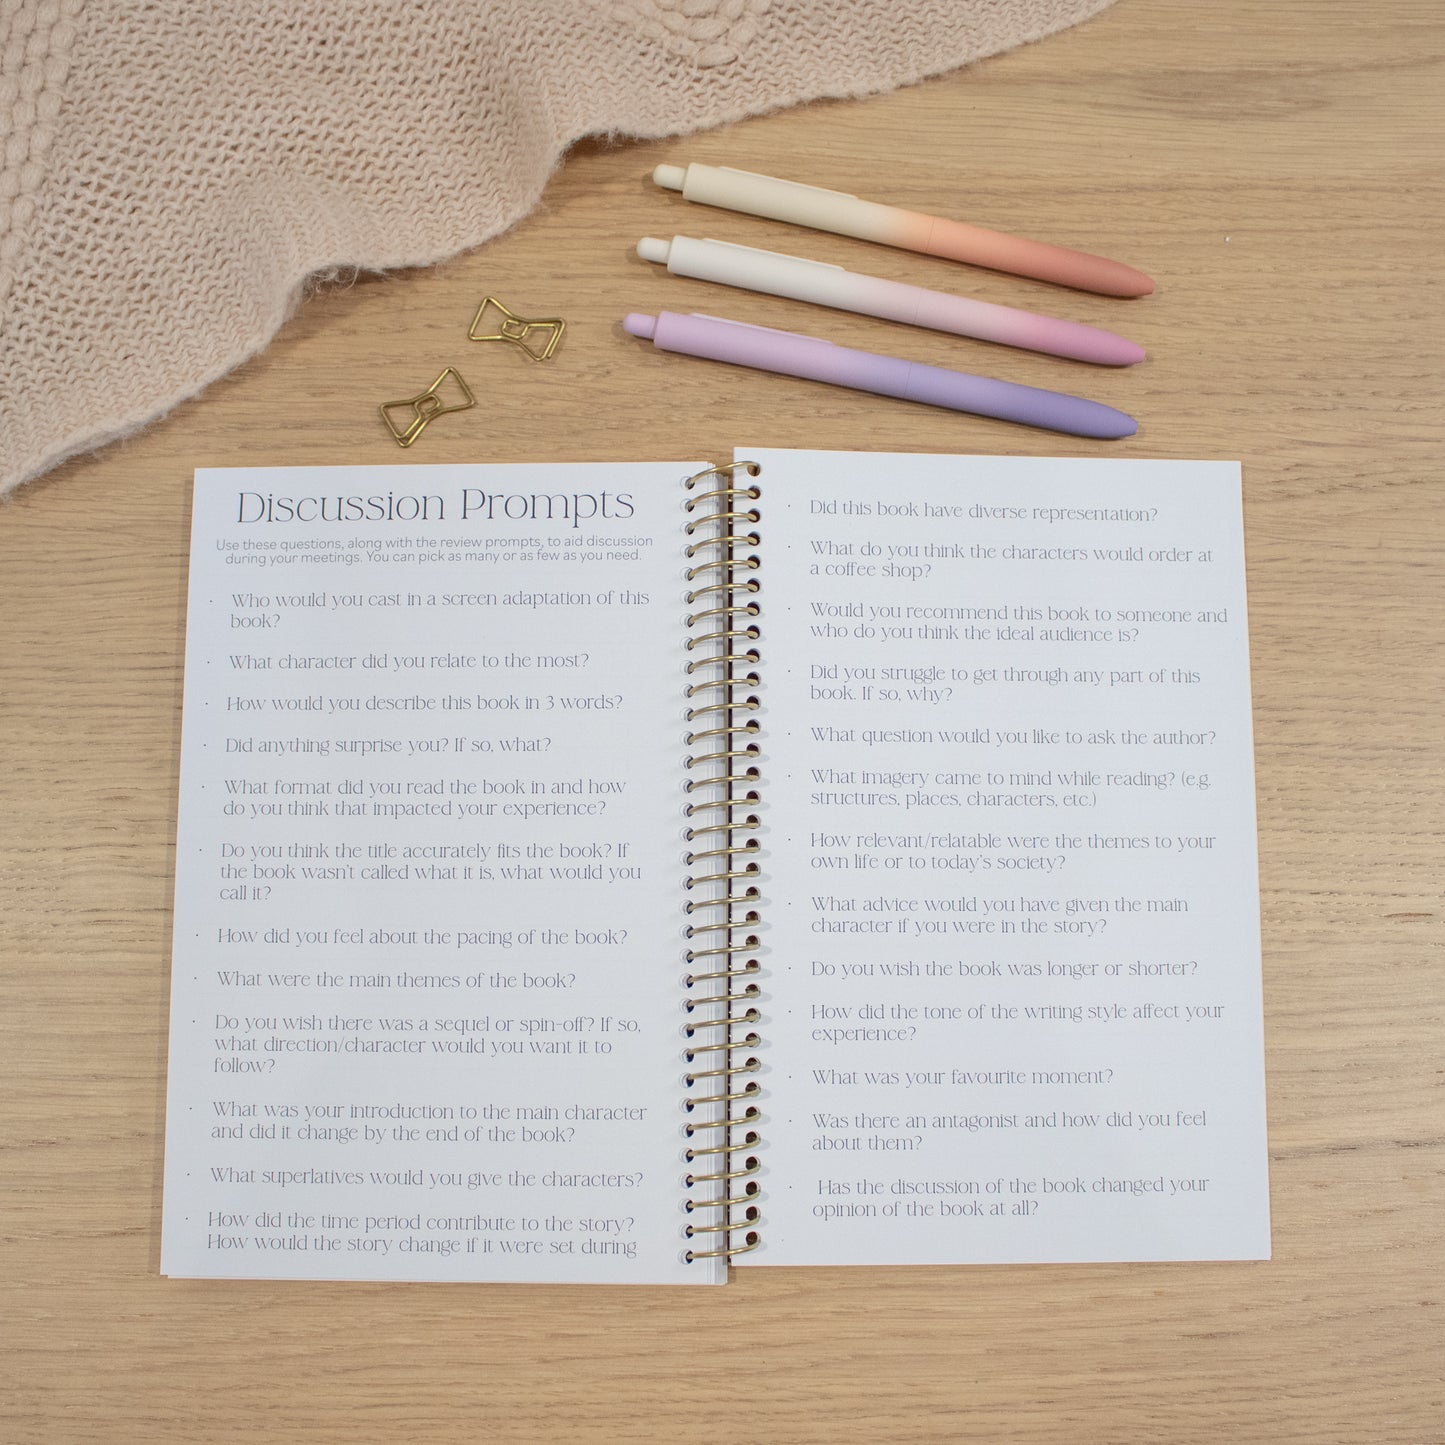 Discussion Prompts
Use these questions, along with the review prompts, to aid discussion
during your meetings. You can pick as many or as few as you need.
· Who would you cast in a screen adaptation of this
book?
· What character did you relate to the most?
· How would you describe this book in 3 words?
· Did anything surprise you? If so, what?
· What format did you read the book in and how
do you think that impacted your experience?
· Do you think the title accurately fits the book? If
the book wasn't called what it is, what would you
call it?
· How did you feel about the pacing of the book?
· What were the main themes of the book?
· Do you wish there was a sequel or spin-off? If so,
what direction/character would you want it to
follow?
· What was your introduction to the main character
and did it change by the end of the book?
· What superlatives would you give the characters?
· How did the time period contribute to the story?
How would the story change if it were set during
· Did this book have diverse representation?
· What do you think the characters would order at
a coffee shop?
· Would you recommend this book to someone and
who do you think the ideal audience is?
· Did you struggle to get through any part of this
book. If so, why?
· What question would you like to ask the author?
· What imagery came to mind while reading? (e.g.
structures, places, characters, etc.)
· How relevant/relatable were the themes to your
own life or to today's society?
· What advice would you have given the main
character if you were in the story?
· Do you wish the book was longer or shorter?
· How did the tone of the writing style affect your
experience?
· What was your favourite moment?
· Was there an antagonist and how did you feel
about them?
· Has the discussion of the book changed your
opinion of the book at all?